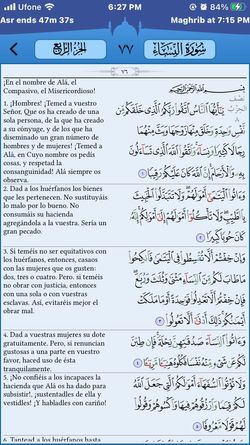 Ufone 6:27 PM 84%
Asr ends 47m 37s Maghrib at 7:15 PM
الجزء الرابع ٧٧ سورة النساء
٧٦
¡En el nombre de Alá, el
Compasivo, el Misericordioso!
بِسْمِ ٱللَّهِ ٱلرَّحْمَـٰنِ ٱلرَّحِيمِ
1. ¡Hombres! ¡Temed a vuestro
Señor, Que os ha creado de una
sola persona, de la que ha creado
a su cónyuge, y de los que ha
diseminado un gran número de
hombres y de mujeres! ¡Temed a
Alá, en Cuyo nombre os pedís
cosas, y respetad la
consanguinidad! Alá siempre os
observa.
يَـٰٓأَيُّهَا ٱلنَّاسُ ٱتَّقُوا۟ رَبَّكُمُ ٱلَّذِى خَلَقَكُم مِّن
نَّفْسٍ وَٰحِدَةٍ وَخَلَقَ مِنْهَا زَوْجَهَا وَبَثَّ مِنْهُمَا
رِجَالًا كَثِيرًا وَنِسَآءً وَٱتَّقُوا۟ ٱللَّهَ ٱلَّذِى تَسَآءَلُونَ
بِهِۦ وَٱلْأَرْحَامَ إِنَّ ٱللَّهَ كَانَ عَلَيْكُمْ رَقِيبًا ١
2. Dad a los huérfanos los bienes
que les pertenecen. No sustituyáis
lo malo por lo bueno. No
consumáis su hacienda
agregándola a la vuestra. Sería un
gran pecado.
وَءَاتُوا۟ ٱلْيَتَـٰمَىٰٓ أَمْوَٰلَهُمْ وَلَا تَتَبَدَّلُوا۟ ٱلْخَبِيثَ
بِٱلطَّيِّبِ وَلَا تَأْكُلُوٓا۟ أَمْوَٰلَهُمْ إِلَىٰٓ أَمْوَٰلِكُمْ إِنَّهُۥ
كَانَ حُوبًا كَبِيرًا ٢
3. Si teméis no ser equitativos con
los huérfanos, entonces, casaos
con las mujeres que os gusten:
dos, tres o cuatro. Pero. si teméis
no obrar con justicia, entonces
con una sola o con vuestras
esclavas. Así, evitaréis mejor el
obrar mal.
وَإِنْ خِفْتُمْ أَلَّا تُقْسِطُوا۟ فِى ٱلْيَتَـٰمَىٰ فَٱنكِحُوا۟
مَا طَابَ لَكُم مِّنَ ٱلنِّسَآءِ مَثْنَىٰ وَثُلَـٰثَ وَرُبَـٰعَ
فَإِنْ خِفْتُمْ أَلَّا تَعْدِلُوا۟ فَوَٰحِدَةً أَوْ مَا مَلَكَتْ
أَيْمَـٰنُكُمْ ذَٰلِكَ أَدْنَىٰٓ أَلَّا تَعُولُوا۟ ٣
4. Dad a vuestras mujeres su dote
gratuitamente. Pero, si renuncian
gustosas a una parte en vuestro
favor, haced uso de ésta
tranquilamente.
وَءَاتُوا۟ ٱلنِّسَآءَ صَدُقَـٰتِهِنَّ نِحْلَةً فَإِن طِبْنَ لَكُمْ
عَن شَىْءٍ مِّنْهُ نَفْسًا فَكُلُوهُ هَنِيٓـًٔا مَّرِيٓـًٔا ٤
5. ¡No confiéis a los incapaces la
hacienda que Alá os ha dado para
subsistir!, ¡sustentadles de ella y
vestidles! ¡Y habladles con cariño!
وَلَا تُؤْتُوا۟ ٱلسُّفَهَآءَ أَمْوَٰلَكُمُ ٱلَّتِى جَعَلَ ٱللَّهُ
لَكُمْ قِيَـٰمًا وَٱرْزُقُوهُمْ فِيهَا وَٱكْسُوهُمْ وَقُولُوا۟
لَهُمْ قَوْلًا مَّعْرُوفًا ٥
6. Tantead a los huérfanos hasta